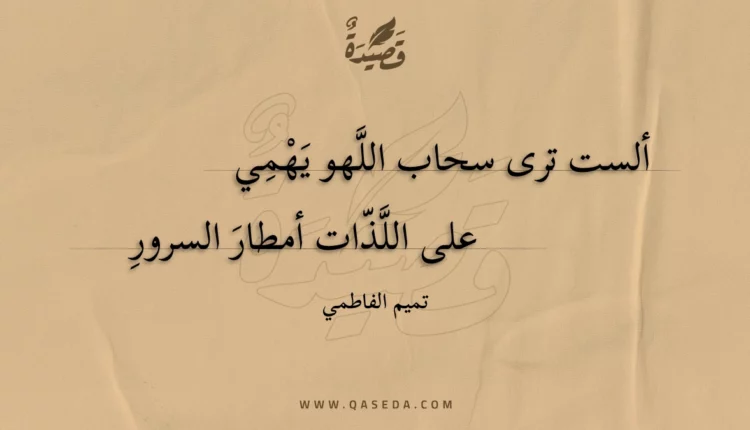 قَصِيدَةٌ
ألست ترى سحاب اللَّهو يَهْمِي
على اللَّذّات أمطارَ السرورِ
تميم الفاطمي
WWW.QASEDA.COM